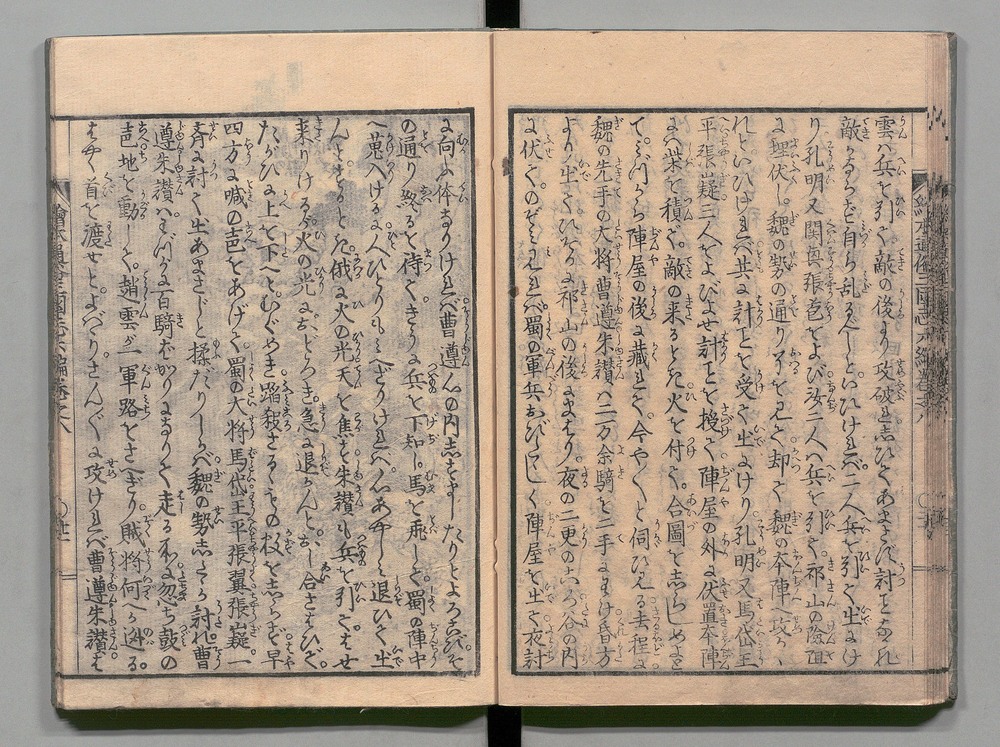 雲ハ兵を引て敵の後より攻破り志ひてあまさバ討とるべれ
敵かならず自ら乱るべしといひけれバ二人兵を引て出にけ
り孔明又関興張苞をよび汝二人ハ兵を引て祁山の險阻
に埋伏し魏の勢の通りすぐるを見て却て魏の本陣へ攻かゝ
れといひけれバ共に計ことを受て出にけり孔明又馬岱王
平張嶷三人をよびよせ計ことを授て陣屋の外に伏置本陣
にハ柴を積て敵の来るとき火を付て合圖を志らしめよと
てミづから陣屋の後に藏れて今や〳〵と伺ひゐる去程に
魏の先手の大将曹遵朱讃ハ二万余騎を二手にわけ昏方
より出てひそかに祁山の後にまはり夜の二更のころ谷の内
に伏てのぞミ見れバ蜀の軍兵おびたゝしく陣屋を出て夜討
に向ふ体なりけれバ曹遵心の内志すましたりとよろこびそ
の通り終るを待てきうに兵を下知し馬を飛して蜀の陣中
へ亂入けるに人ひとりもミへざりけれバ心あやしミ退ひて出
んとするとき俄に火の光天を焦し朱讃も兵を引てはせ
来りけるが火の光におどろき急に退かんとおし合さはひで
たがひに上を下へともぐめき踏殺さるゝもの数を志らず早
四方に喊の声をあげて蜀の大将馬岱王平張翼張嶷一
斉に討て出あまさじと揉だりしかバ魏の勢志たゝか討れ曹
遵朱讃ハわづか百騎ばかりになりて走る所に忽ち鼓の
声地を動して趙雲が一軍路をさへぎり賊将何へか逃る
はやく首を渡せとよばゝりさん〴〵に攻けれバ曹遵朱讃は